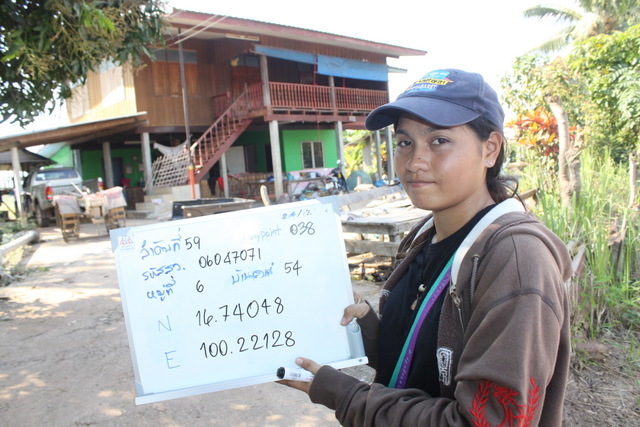 ลำดับที่ 59 waypoint 038
รหัส 06047071
หมู่ที่ 6 บ้านเลขที่ 54
N 16.74048
E 100.22128